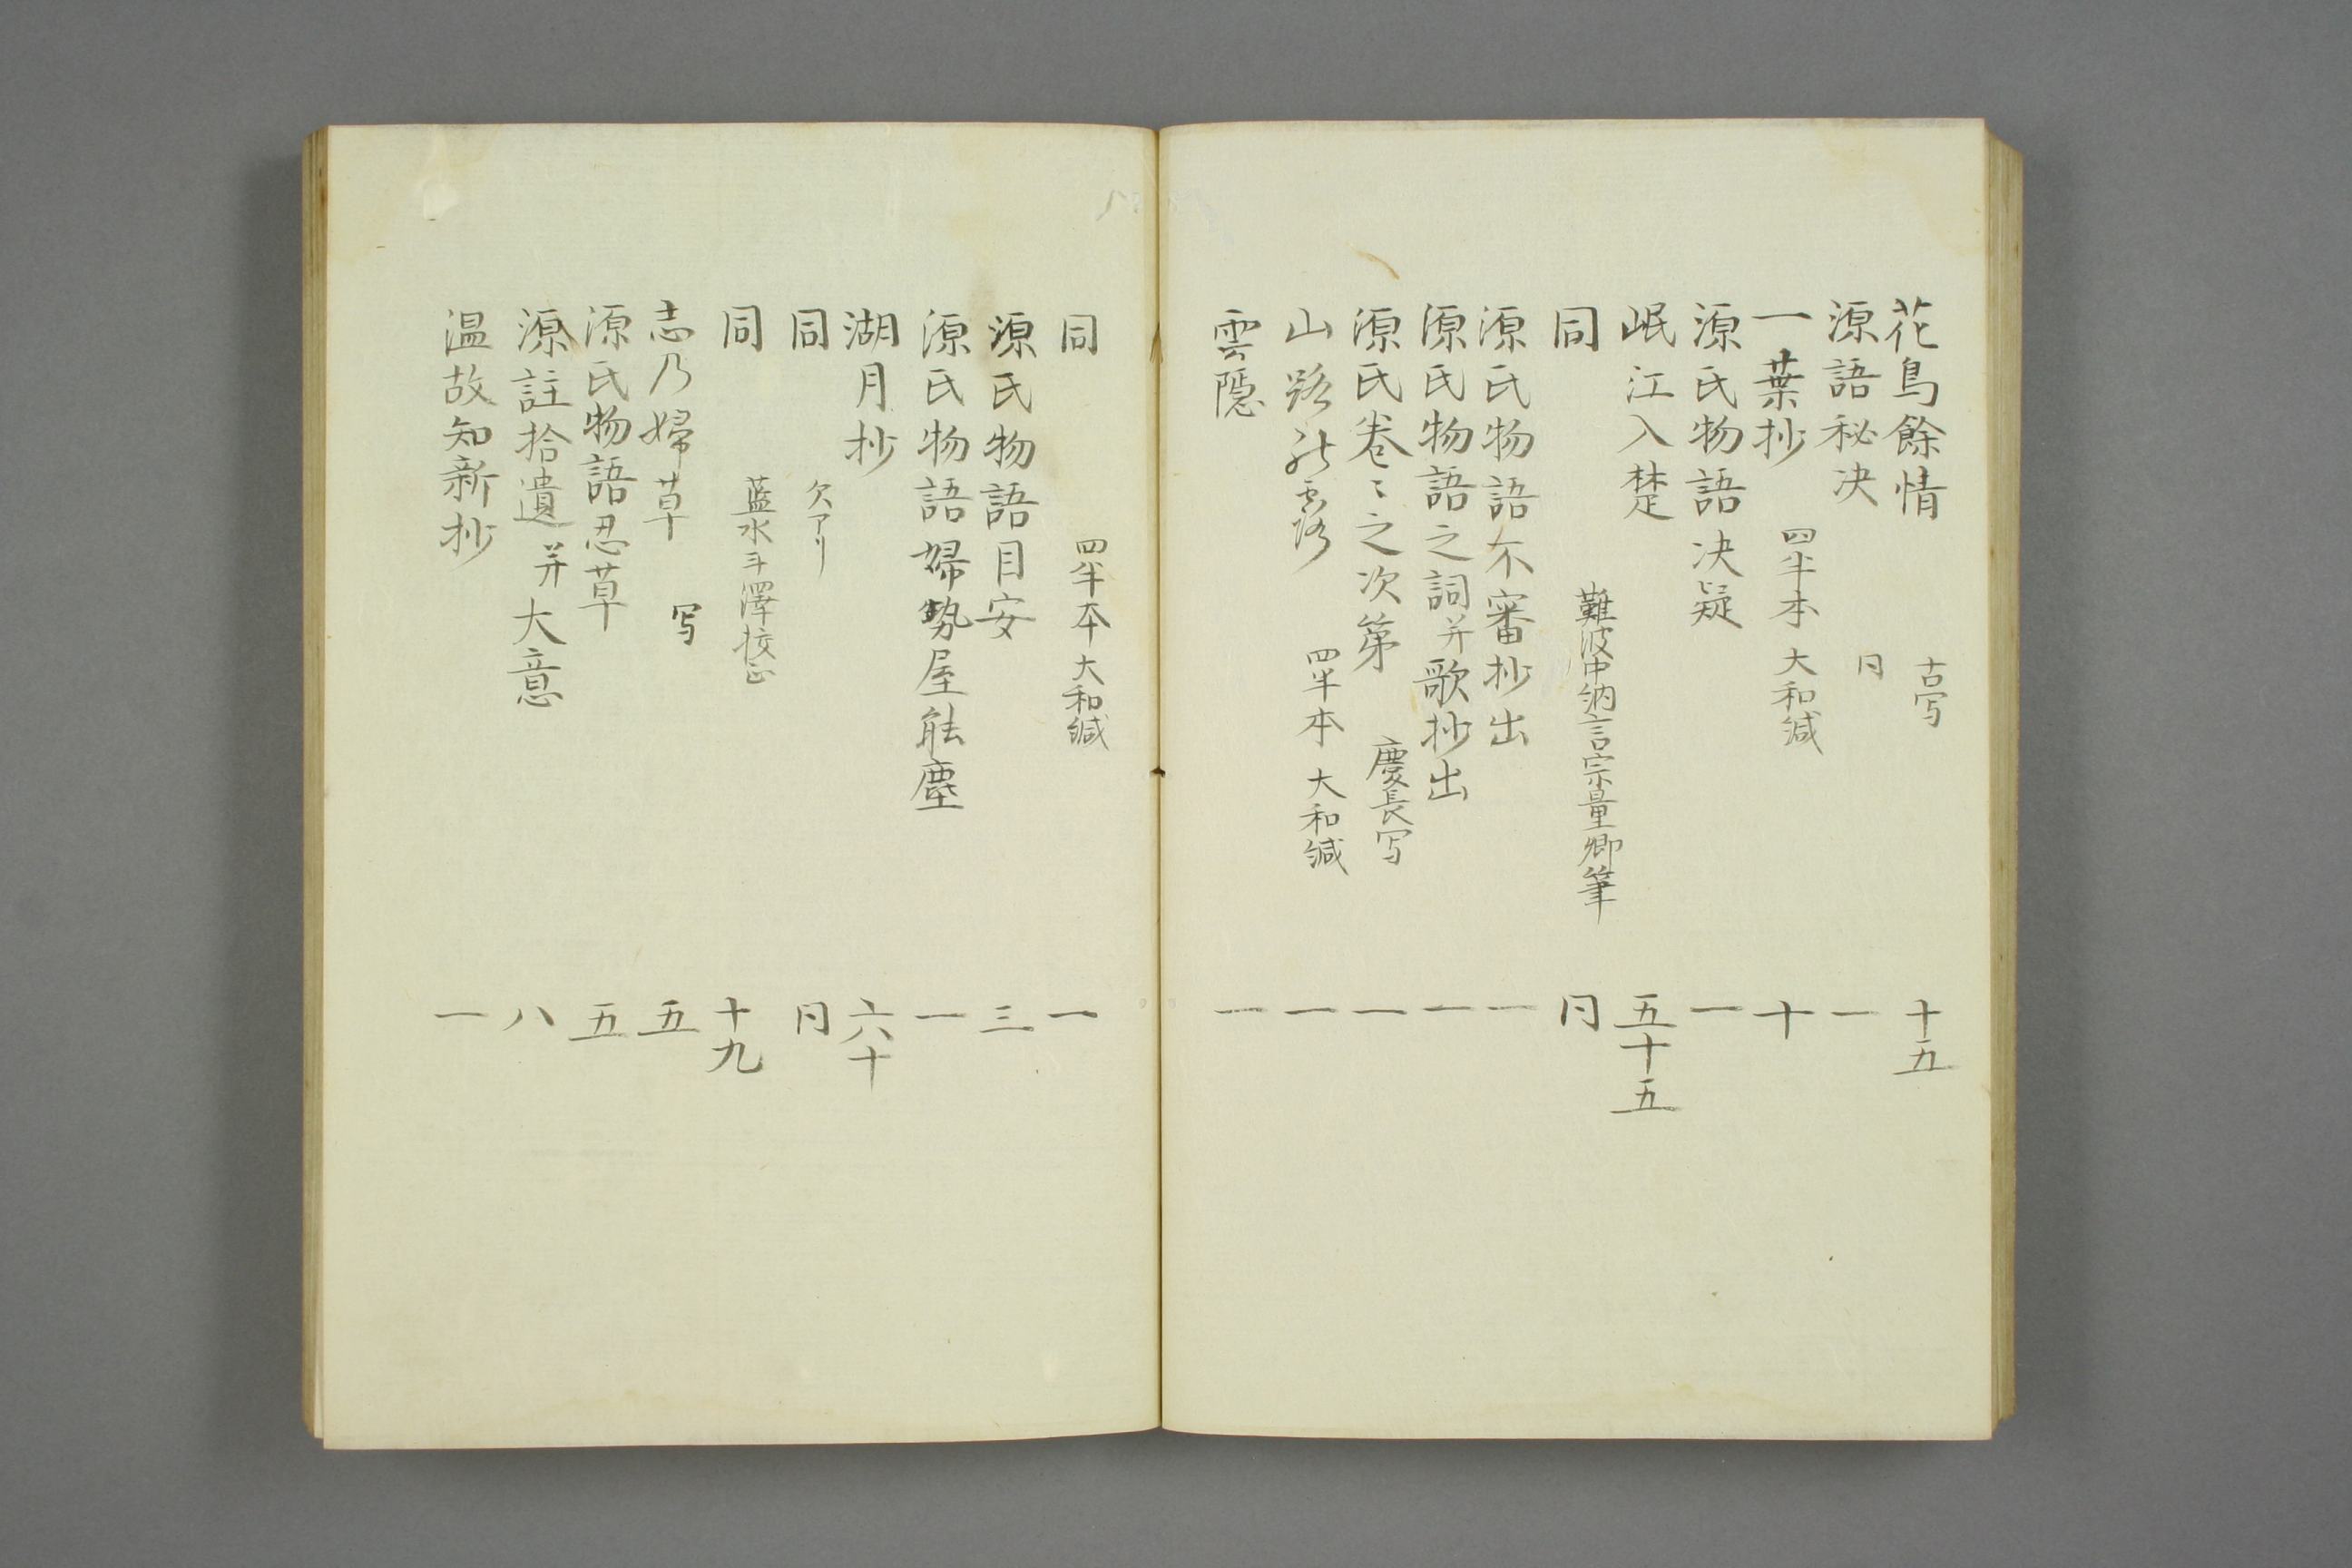 花鳥餘情 古写 十五
源語秘决 同 一
一葉抄 四半本 大和緘 十
源氏物語决疑 一
岷江入楚 五十五
同 難波中納言宗量卿筆 同
源氏物語不審抄出 一
源氏物語之詞并歌抄出 一
源氏卷〻之次第 慶長写 一
山路能露 四半本 大和緘 一
雲隠 一
同 四半本 大和緘 一
源氏物語目安 三
源氏物語婦勢屋能塵 一
湖月抄 六十
同 欠アリ 同
同 藍水斗澤挍正 十九
志乃婦草 写 五
源氏物語忍草 五
源註拾遺并大意 八
温故知新抄 一